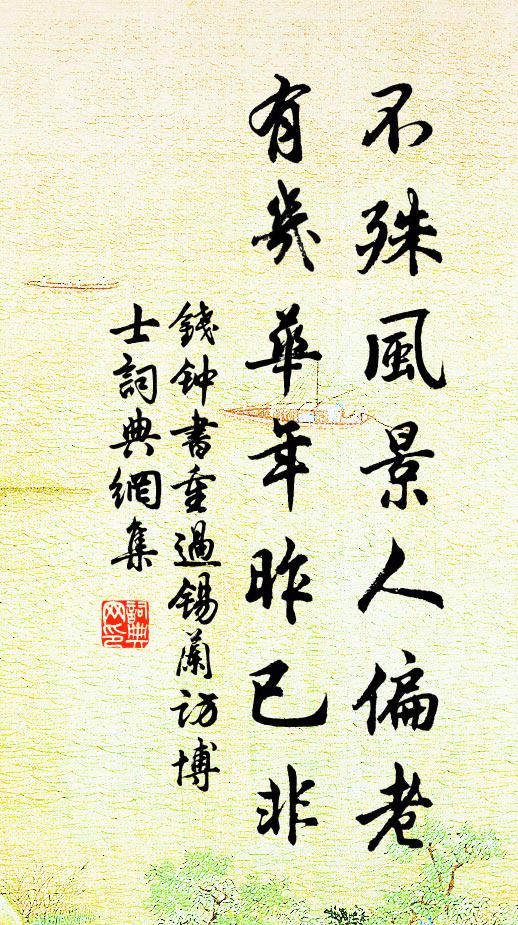 不殊風景人偏老
有幾華年昨已非
錢鈡書重過锡蘭访博
士詞典網集
詞典网印